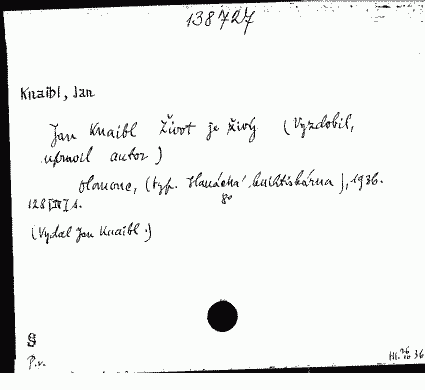 138727
Knaibl, Jan
Jan Knaibl Život je živý (Vyzdobil,
upravil autor)
Olomouc, (typ. Hanácká knihtiskárna), 1936.
8°
128 [IV] s.
(Vydal Jan Knaibl.)
§
P.v.
III. 36